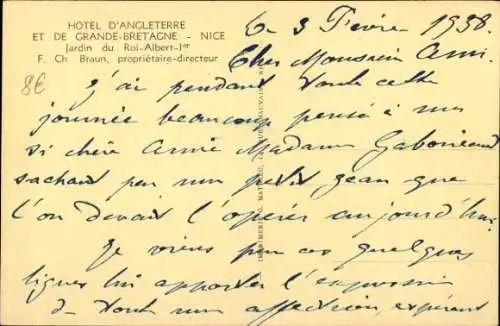 HOTEL D'ANGLETERRE
ET DE GRANDE-BRETAGNE - NICE
Jardin du Roi-Albert-Ier
F. Ch Braun, propriétaire-directeur
8€
3 Février 1938.
Cher Monsieur Ami.
J'ai pendant toute cette
journée beaucoup pensé à
si chère Amie Madame
sachant par un petit que
l'on devait l'opérer aujourd'hui
Je viens par ces quelques
lignes lui apporter l'expression
de toute mon affection, espérant